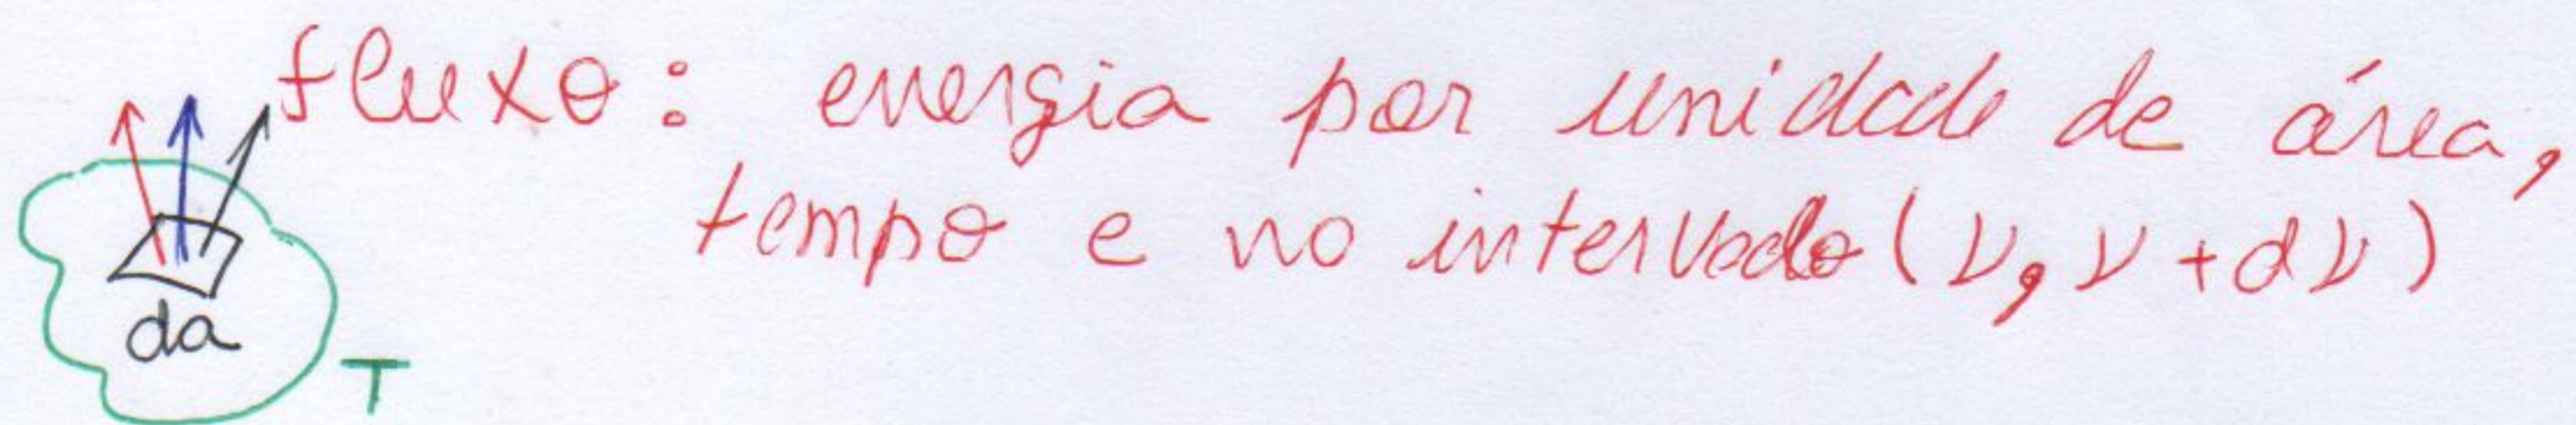 fluxo: energia por unidade de área,
tempo e no intervalo (ν, ν + dν)
da
T